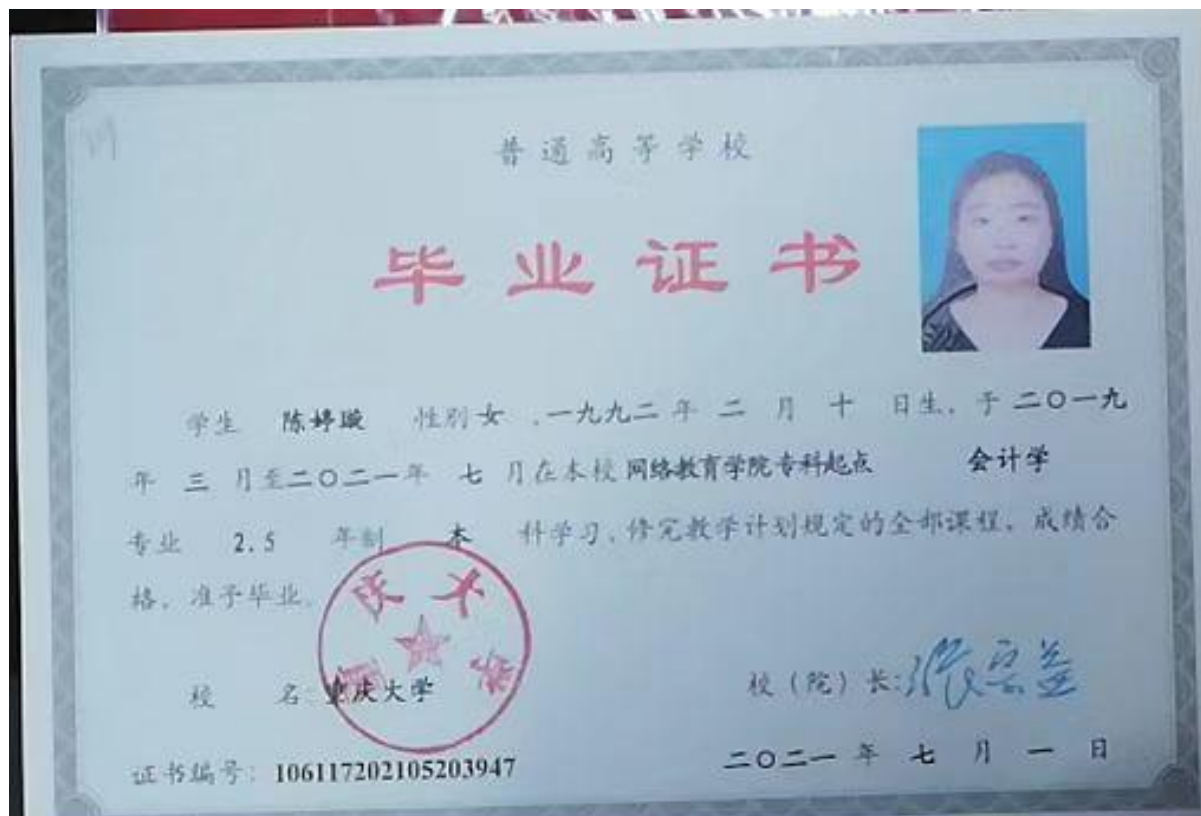 普通高等学校
毕业证书
学生 陈婷璇 性别 女 ,一九九二 年 二 月 十 日生, 于 二〇一九
年 三 月至二〇二一年 七 月在本校 网络教育学院专科起点 会计学
专业 2.5 年制 本 科学习,修完教学计划规定的全部课程, 成绩合
格, 准予毕业。
校 名: 重庆大学
校（院）长: 张宗益
证书编号: 106117202105203947
二〇二一 年 七 月 一 日